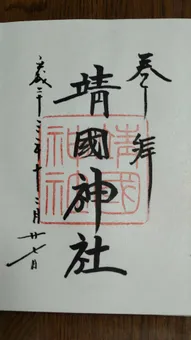 奉拝
靖國神社
平成二十年十二月廿七日
靖國
神社